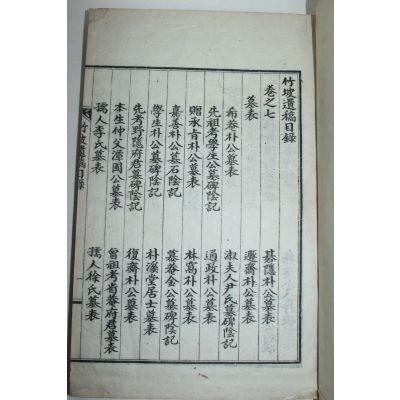 竹坡遺稿目錄
卷之七
碁隱朴公墓表
墓表
遯齋朴公墓表
希庵朴公墓表
淑夫人尹氏墓碑陰記
先祖考學生公墓碑陰記
通政朴公墓表
贈承旨朴公墓表
林窩朴公墓表
嘉善朴公墓石陰記
慕庵金公墓碑陰記
學生朴公墓碑陰記
朴溪堂居士墓表
先考野隱府君墓碑陰記
復齋朴公墓表
本生仲父源圃公墓表
曾祖考省庵府君墓表
孺人李氏墓表
孺人徐氏墓表
竹坡遺稿目錄